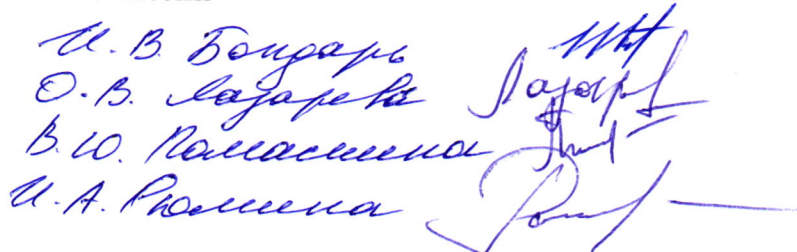 И. В. Бондарь
О. В. Лазарева Лазарев
В. Ю. Помасшина
И. А. Рюмина